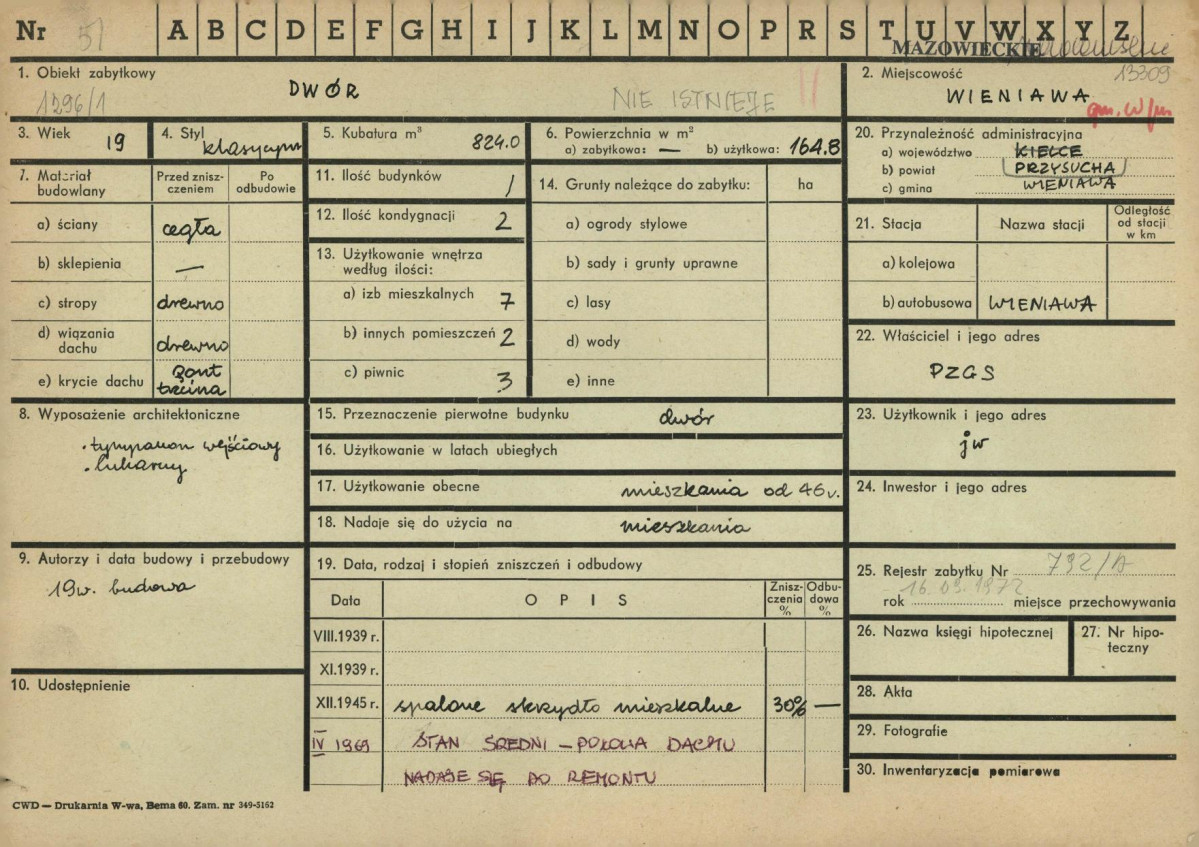 Nr 51 A B C D E F G H I J K L M N O P R S T U V W X Y Z
MAZOWIECKIE
13309
1. Obiekt zabytkowy
DWÓR
1296/1
NIE ISTNIEJE
2. Miejscowość
WIENIAWA
3. Wiek
19
4. Styl
klasycyzm
5. Kubatura m³
824.0
6. Powierzchnia w m²
a) zabytkowa: — b) użytkowa: 164.8
7. Materiał budowlany
Przed zniszczeniem
Po odbudowie
a) ściany cegła
b) sklepienia —
c) stropy drewno
d) wiązania dachu drewno
e) krycie dachu gont
trzcina
8. Wyposażenie architektoniczne
. tympanon wejściowy
. lukarny
9. Autorzy i data budowy i przebudowy
19w. budowa
10. Udostępnienie
11. Ilość budynków 1
12. Ilość kondygnacji 2
13. Użytkowanie wnętrza
według ilości:
a) izb mieszkalnych 7
b) innych pomieszczeń 2
c) piwnic 3
14. Grunty należące do zabytku: ha
a) ogrody stylowe
b) sady i grunty uprawne
c) lasy
d) wody
e) inne
15. Przeznaczenie pierwotne budynku dwór
16. Użytkowanie w latach ubiegłych
17. Użytkowanie obecne mieszkania od 46r.
18. Nadaje się do użycia na mieszkania
19. Data, rodzaj i stopień zniszczeń i odbudowy
Data OPIS Zniszczenia % Odbudowa %
VIII.1939 r.
XI.1939 r.
XII.1945 r. spalone skrzydło mieszkalne 30% —
IV 1969 STAN ŚREDNI – POŁOWA DACHU
NADAJE SIĘ DO REMONTU
20. Przynależność administracyjna
a) województwo KIELCE
b) powiat PRZYSUCHA
c) gmina WIENIAWA
21. Stacja Nazwa stacji Odległość od stacji w km
a) kolejowa
b) autobusowa WIENIAWA
22. Właściciel i jego adres
PZGS
23. Użytkownik i jego adres
jw
24. Inwestor i jego adres
25. Rejestr zabytku Nr 792/A
16.03.1972
rok miejsce przechowywania
26. Nazwa księgi hipotecznej
27. Nr hipoteczny
28. Akta
29. Fotografie
30. Inwentaryzacja pomiarowa
CWD — Drukarnia W-wa, Bema 60. Zam. nr 349-5162